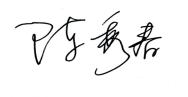 陈秀春